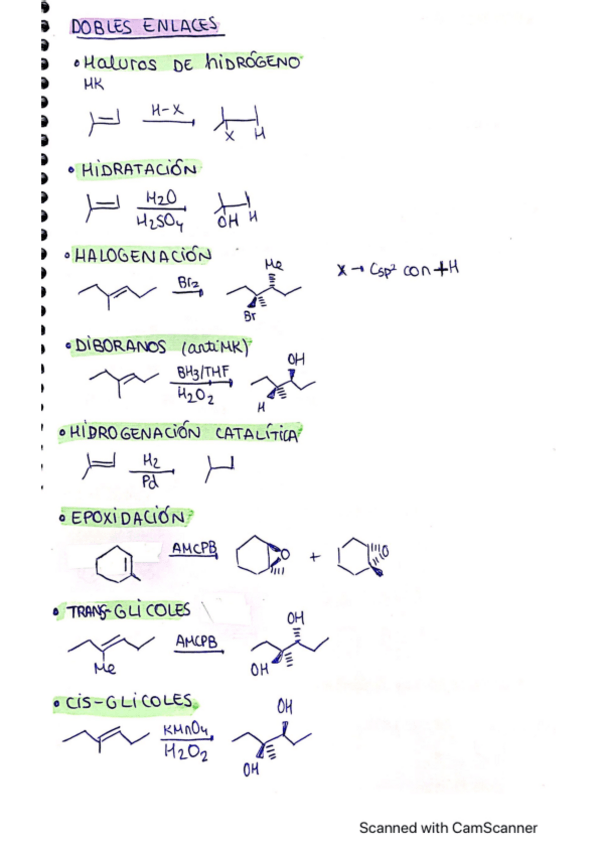 DOBLES ENLACES
• Haluros DE hiDRÓGENO
MK
H-X
X H
• HiDRATACIÓN
H2O
H2SO4
OH H
• HALOGENACIÓN
Br2
Me
Br
X → Csp² con + H
• DiBORANOS (antiMK)
BH3/THF
H2O2
OH
H
• HiDROGENACIÓN CATALÍTICA
H2
Pd
• EPOXiDACIÓN
AMCPB
O + O
• TRANS-GLiCOLES
Me
AMCPB
OH
OH
• CiS-GLiCOLES
KMnO4
H2O2
OH
OH
Scanned with CamScanner